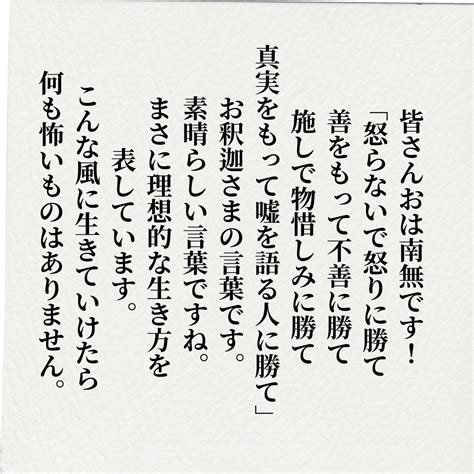 皆さんおは南無です！
「怒らないで怒りに勝て
善をもって不善に勝て
施しで物惜しみに勝て
真実をもって嘘を語る人に勝て」
お釈迦さまの言葉です。
素晴らしい言葉ですね。
まさに理想的な生き方を
表しています。
こんな風に生きていけたら
何も怖いものはありません。